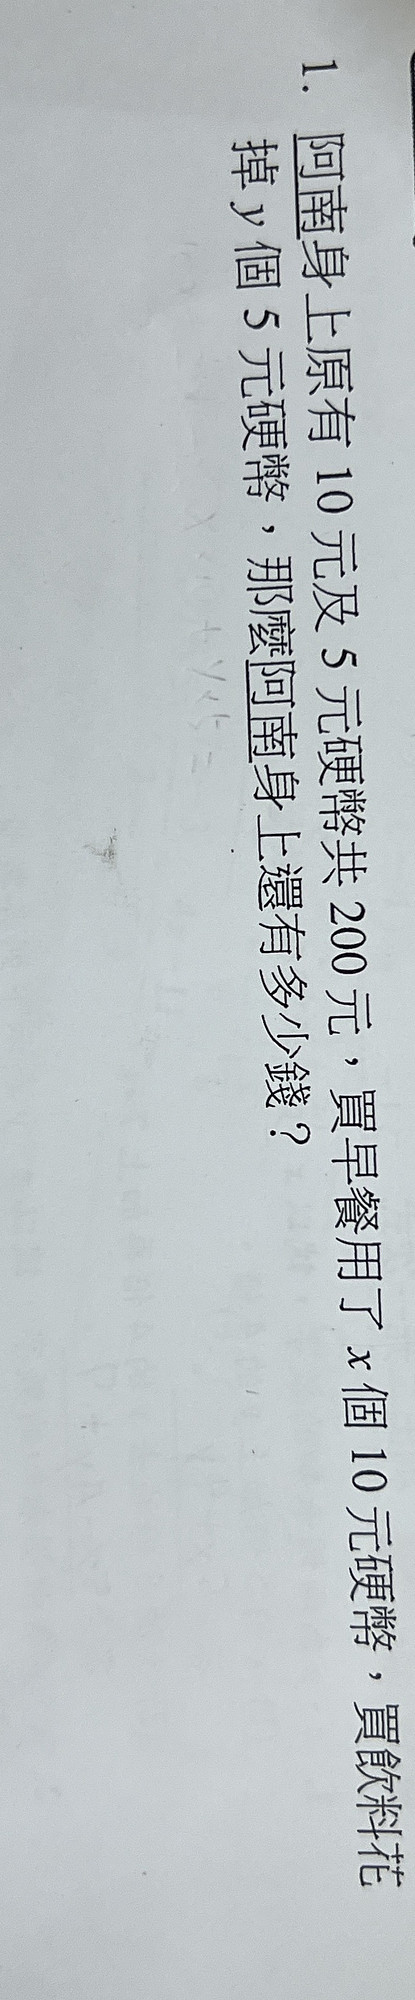 1. 阿南身上原有 10 元及 5 元硬幣共 200 元，買早餐用了 x 個 10 元硬幣，買飲料花
掉 y 個 5 元硬幣，那麼阿南身上還有多少錢？